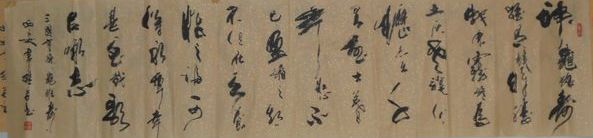 神龜雖壽
猶有竟時騰
蛇乘霧終爲
土灰老驥伏
櫪志在千
里烈士暮年
壯心不
已盈縮之期
不但在天養
怡之福可
得永年幸
甚至哉歌
以詠志
三國曹操龜雖壽